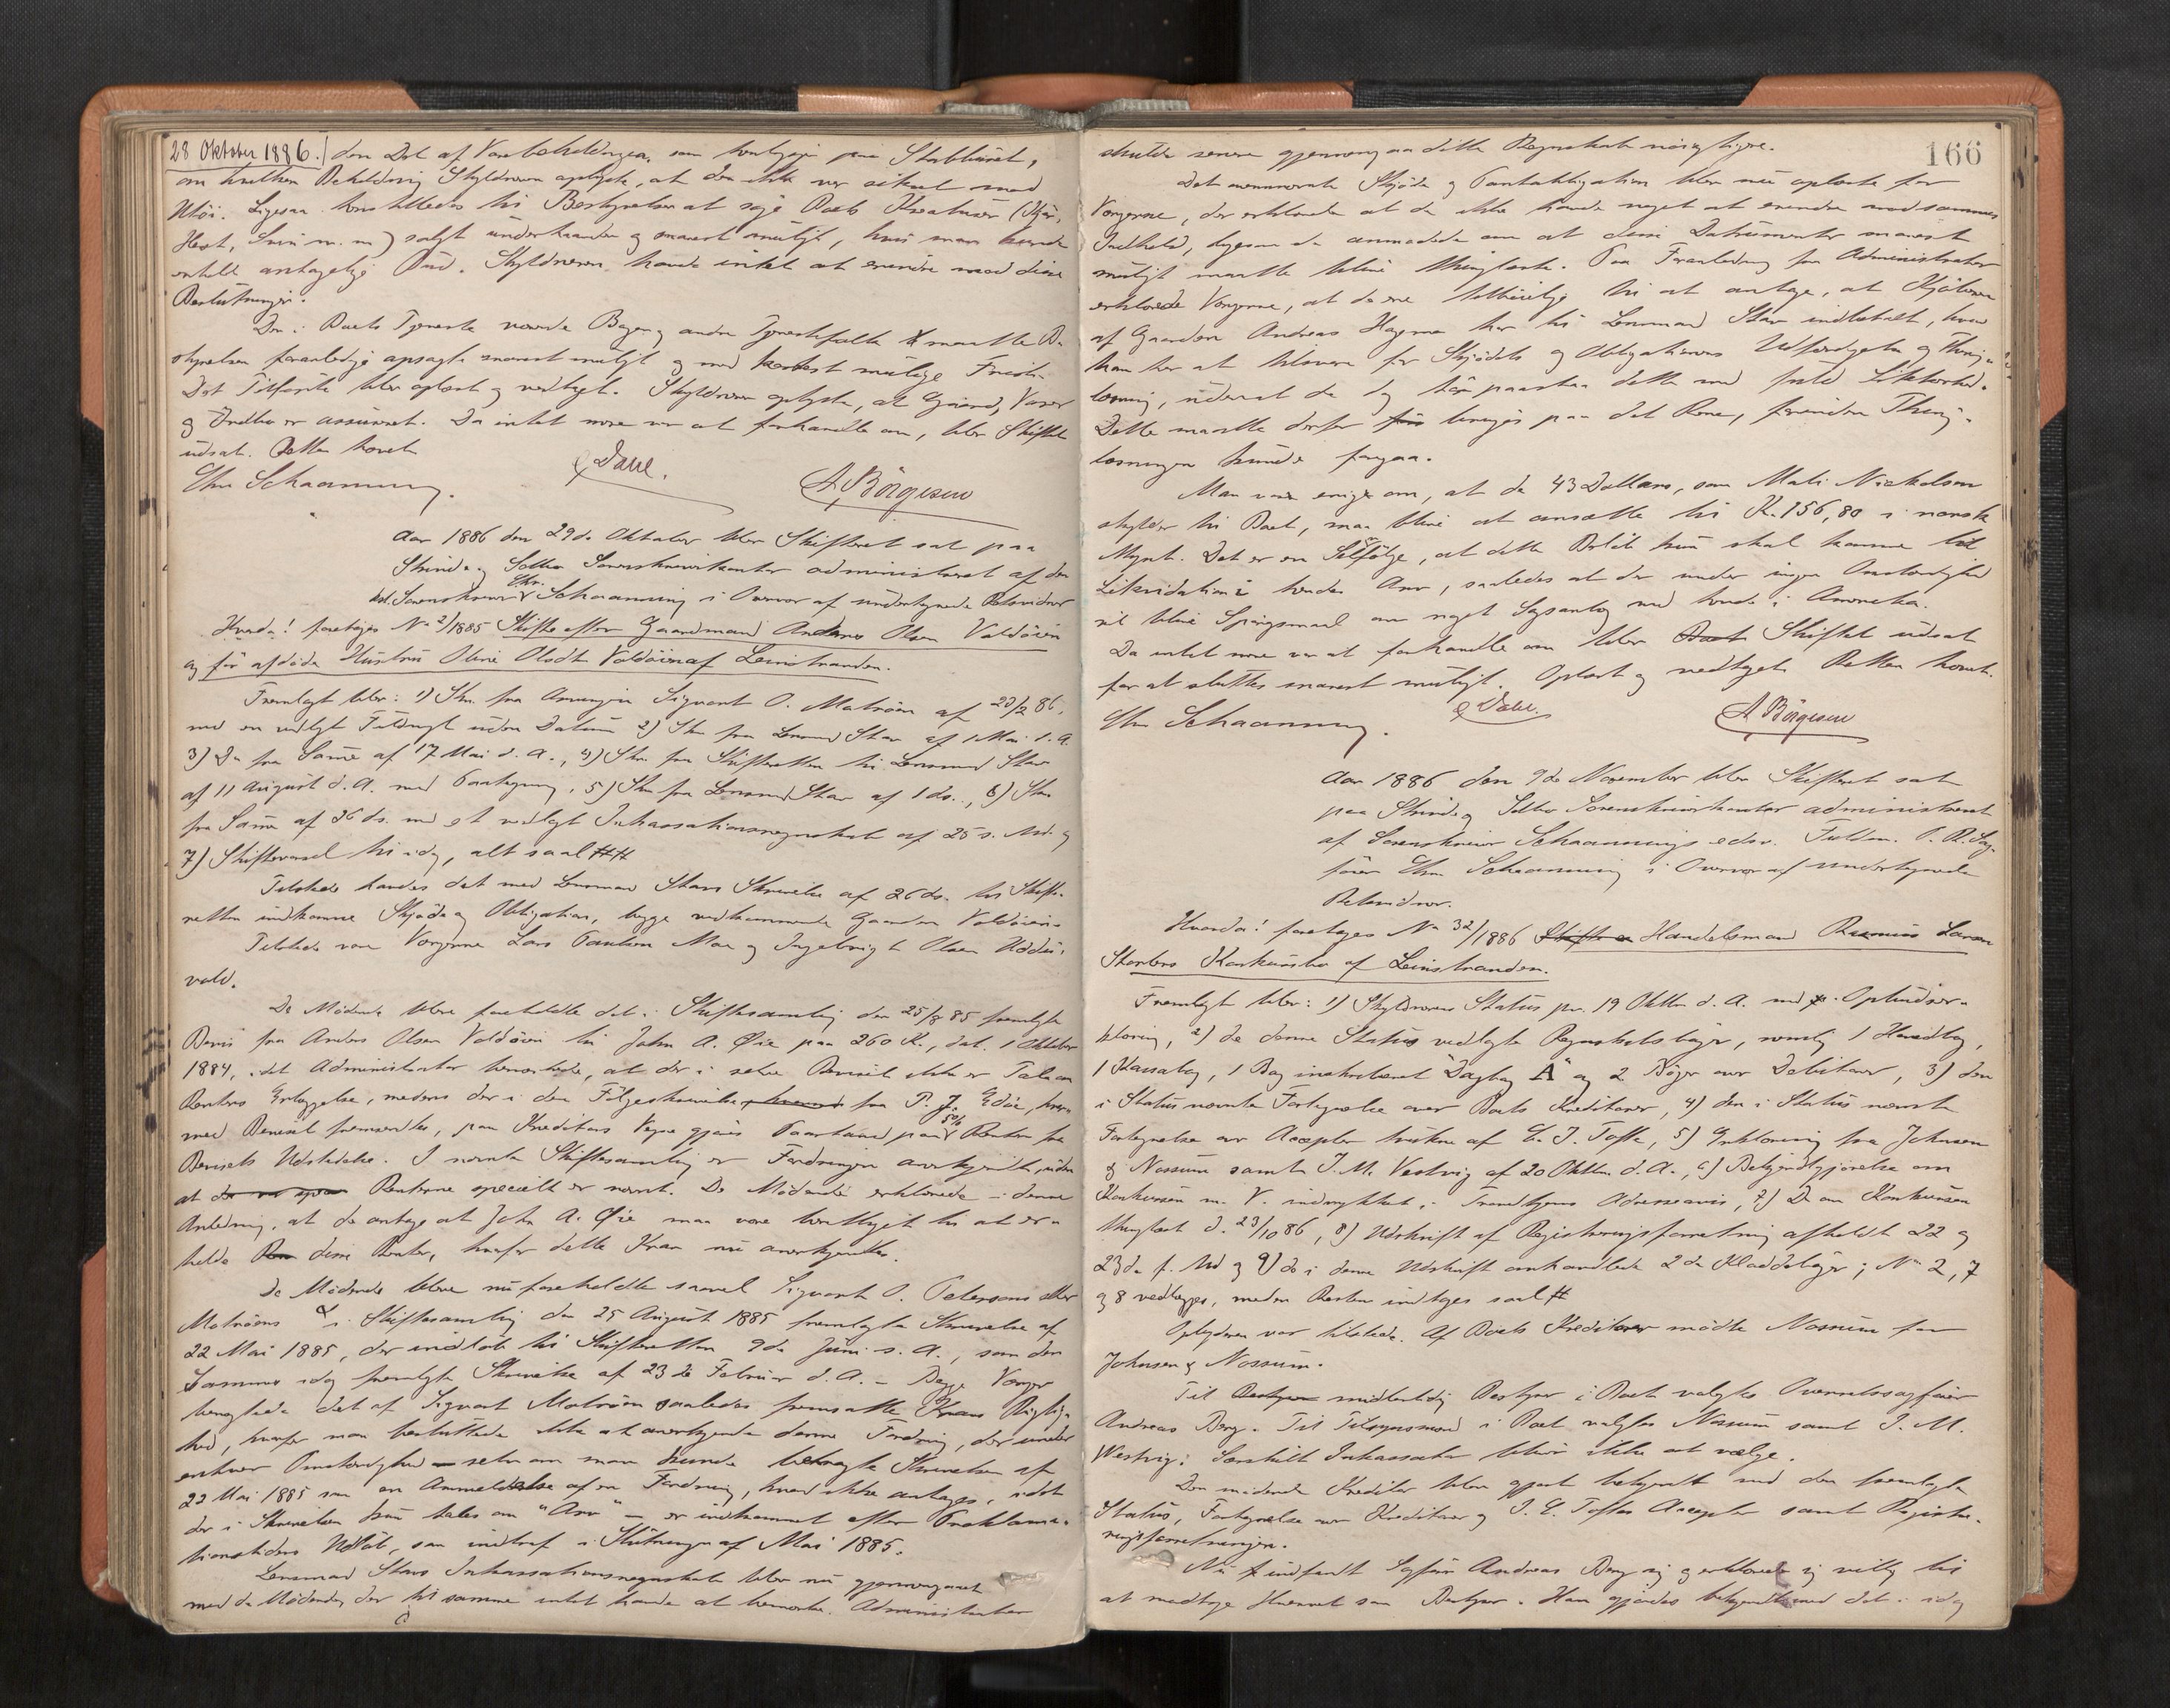 28 Oktober 1886. den Del af Varebeholdningen, som henligger paa Stabburet,
om hvilken Beholdning Skyldneren oplyste, at den ikke var sikret mod
Utöi. Ligesaa henstilledes til Bestyrelsen at söge Boets Kreaturer (Kjör,
Hest, Svin m. m) solgt underhaanden og snarest muligt, hvis man kunde
erholde antagelig Bud. Skyldneren havde intet at erindre mod disse
Beslutninger.
Den i Boets Tjeneste værende Bager og andre Tjenestefolk maatte Be-
styrelsen foranledige opsagte snarest muligt og med kortest mulige Frist.
Det Tilförte blev oplæst og vedtaget. Skyldneren oplyste, at Gaard, Varer
og Indbo er assureret. Da intet mere var at forhandle om, blev Skiftet
udsat. Retten hævet
Chr Schaanning. Dahl. A. Börgesen
Aar 1886 den 29de Oktober blev Skifteret sat paa
Strinde og Selbu Sorenskriverkontor administreret af den
kst. Sorenskriver Chr. Schaanning i Overvær af undertegnede Retsvidner
Hvorda! foretoges No 2/1885 Skifte efter Gaardmand Anders Olsen Valdöien
og för afdöde Hustru Oline Olsdtr Valdöien af Leinstranden.
Fremlagt blev: 1) Skr. fra Arvingen Sigvart O. Moträen af 23/2 86,
med en vedlagt Fuldmagt uden Datum 2) Skr fra Lensmand Skar af 1 Mai d. A.
3) Do fra Samme af 17 Mai d. A., 4) Skr. fra Skifteretten til Lensmand Skar
af 11 August d. A. med Paategning, 5) Skr fra Lensmand Skar af 1 ds., 6) Skr
fra Samme af 26 ds. med et vedlagt Inkassationsregnskab af 25 s. Md. og
7) Skiftevarsel til idag, alt saal ##
Tilstede havdes det med Lensmand Skars Skrivelse af 26 ds. til Skifte-
retten indkomne Skjöde og Obligation, begge vedkommende Gaarden Valdöien.
Tilstede var Vergerne Lars Paulsen Moe og Ingebrigt Olsen Uddu-
vold.
De Mödende bleve foreholdte det i Skiftesamling den 25/8 85 fremlagte
Bevis fra Anders Olsen Valdöien til John A. Öie paa 260 K., dat. 1 Oktober
1884, idet Administrator bemærkede, at der i selve Beviset ikke er Tale om
Renters Erlæggelse, medens der i den Fölgeskrivelse fra P. J. Edöe, hvor-
med Beviset fremsendtes, paa Kreditors Vegne gjöres Paastand paa 5% Renter fra
Bevisets Udstedelse. I nævnte Skiftesamling er Fordringen anerkjendt, uden
at Renterne specielt er nævnt. De Mödende erklærede i denne
Anledning, at de antage at John A. Öie maa være berettiget til at er-
holde disse Renter, hvorfor dette Krav nu anerkjendtes.
De Mödende bleve nu foreholdte saavel Sigvart O. Petersens eller
Moträens i Skiftesamling den 25 August 1885 fremlagte Skrivelse af
22 Mai 1885, der indlöb til Skifteretten 9de Juni s. A., som den
Sammes idag fremlagte Skrivelse af 23de Februar d. A. – Begge Verger
benægtede det af Sigvart Moträen saaledes fremsatte Kravs Rigtig-
hed, hvorfor man besluttede ikke at anerkjende denne Fordring, der under
enhver Omstændighed – selv om man kunde betragte Skrivelsen af
22 Mai 1885 som en Anmeldelse af en Fordring, hvad ikke antages, idet
der i Skrivelsen kun tales om "Arv" – er indkommet efter Proklama-
tionstidens Udlöb, som indtraf i Slutningen af Mai 1885.
Lensmand Skars Inkassationsregnskab blev nu gjennemgaaet
med de Mödende, der til samme intet havde at bemærke. Administrator
166
skulde senere gjennemgaa dette Regnskab nöiagtigere.
Det ovennævnte Skjöde og Pantobligation blev nu oplæste for
Vergerne, der erklærede at de ikke havde noget at erindre mod sammes
Indhold, ligesom de anmodede om at disse Dokumenter snarest
muligt maatte blive thinglæste. Paa Foranledning fra Administrator
erklærede Vergerne, at de ere tilböielige til at antage, at Kjöberen
af Gaarden Andreas Hagensen har til Lensmand Skar indbetalt, hvad
han har at tilsvare for Skjödets og Obligationens Udfærdigelse og Thing-
læsning, uden at de dog tör paastaa dette med fuld Sikkerhed.
Dette maatte derfor bringes paa det Rene, forinden Thing-
læsningen kunde foregaa.
Man var enige om, at de 43 Dollars, som Mali Nickelsen
skylder til Boet, maa blive at ansætte til K. 156,80 i norsk
Mynt. Det er en Selfölge, at dette Belöb kun skal komme til
Likvidation i hendes Arv, saaledes at der under ingen Omstændighed
vil blive Spörgsmaal om noget Sagsanlæg mod hende i Amerika.
Da intet mere var at forhandle om blev Skiftet udsat
for at sluttes snarest muligt. Oplæst og vedtaget. Retten hævet.
Chr Schaanning. Dahl. A. Börgesen
Aar 1886 den 9de November blev Skifteret sat
paa Strinde og Selbu Sorenskriverkontor administreret
af Sorenskriver Schaannings edsv. Fuldm. O. R. Sag-
förer Chr Schaanning i Overvær af undertegnede
Retsvidner.
Hvorda! foretoges No 32/1886 Handelsmand Rasmus Larsen
Storlers Konkursbo af Leinstranden.
Fremlagt blev: 1) Skyldnerens Status pr. 19 Oktbr d. A. med Opbudser-
klæring, 2) de denne Status vedlagte Regnskabsböger, nemlig 1 Hovedbog,
1 Kassabog, 1 Bog inskriberet Dagbog A og 2 Böger over Debitorer, 3) den
i Status nævnte Fortegnelse over Boets Kreditorer, 4) den i Status nævnte
Fortegnelse over Accepter trukne af E. J. Tofte, 5) Erklæring fra Johnsen
& Nossum samt J. M. Vestvig af 20 Oktbr d. A., 6) Bekjendtgjörelse om
Konkursen m. V. indrykket i Trondhjems Adresseavis, 7) Do om Konkursen
thinglæst d. 23/10 86, 8) Udskrift af Registreringsforretning afholdt 22 og
23de f. Md og 9) de i denne Udskrift omhandlede 2de Kladdeböger; No 2, 7
og 8 vedlægges, meden Resten indtages saal #
Opbyderen var tilstede. Af Boets Kreditorer mödte Nossum for
Johnsen & Nossum.
Til midlertidig Bestyrer i Boet valgtes Overretssagförer
Andreas Berg. Til Tilsynsmænd i Boet valgtes Nossum samt J. M.
Westvig; Særskilt Inkassator blev ikke at vælge.
Den mödende Kreditor blev gjort bekjendt med den fremlagte
Status, Fortegnelse over Kreditorer og J. E. Toftes Accepter samt Registre-
ringsforretningen.
Nu indfandt Sagförer Andreas Berg sig og erklærede sig villig til
at modtage Hvervet som Bestyrer. Han gjordes bekjendt med det i idag